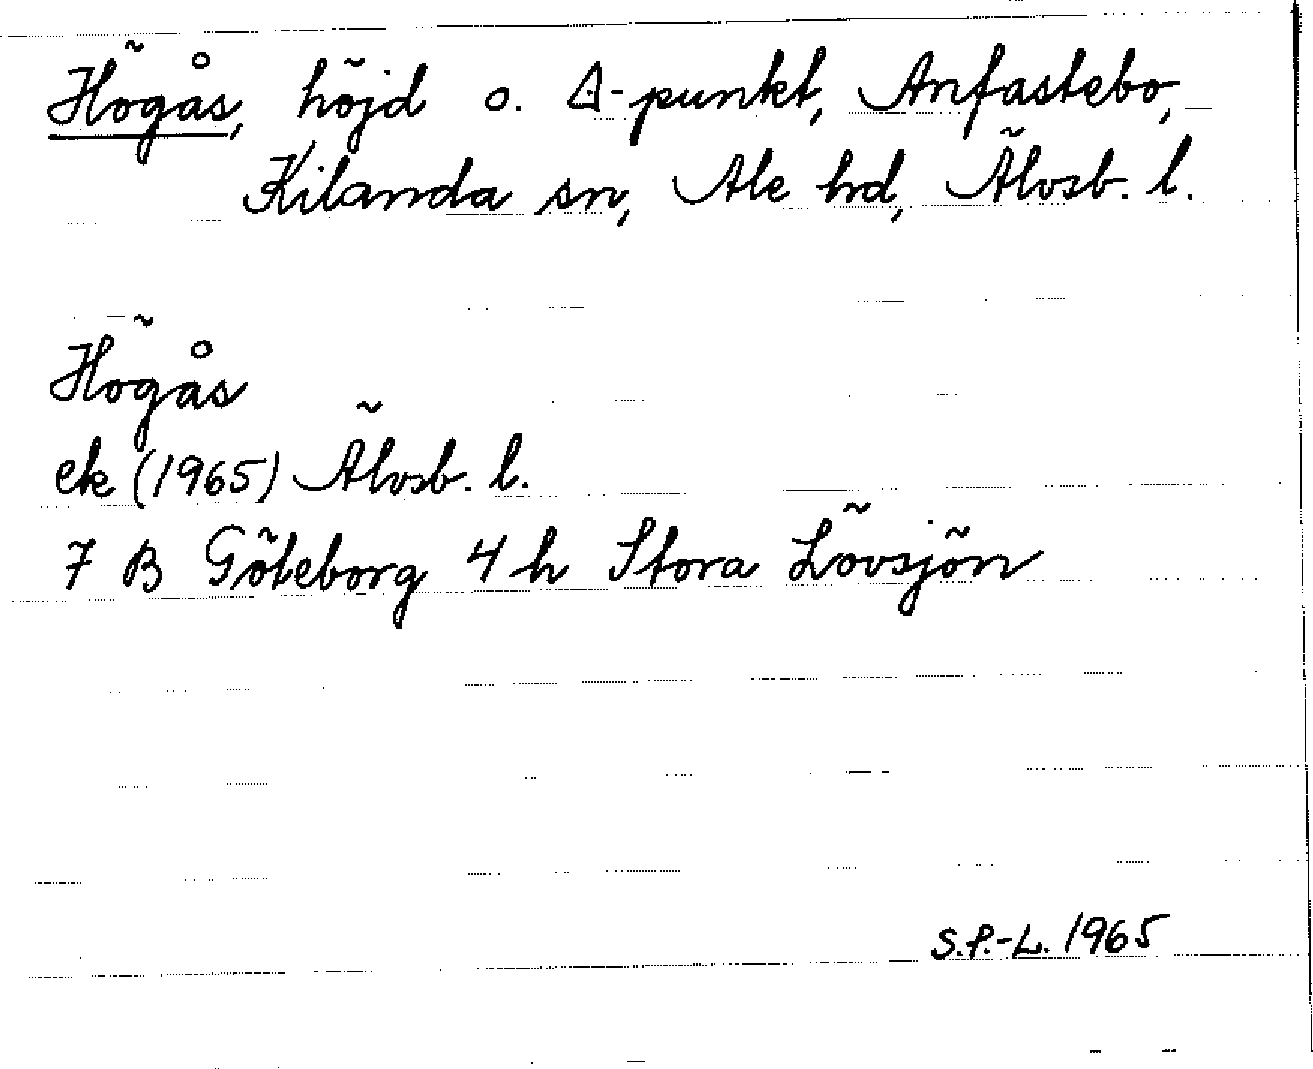 Högås, höjd o. △-punkt, Anfastebo,
Kilanda sn, Ale hd, Älvsb. l.
Högås
ek (1965) Älvsb. l.
7 B Göteborg 4 h Stora Lövsjön
S.P.-L. 1965